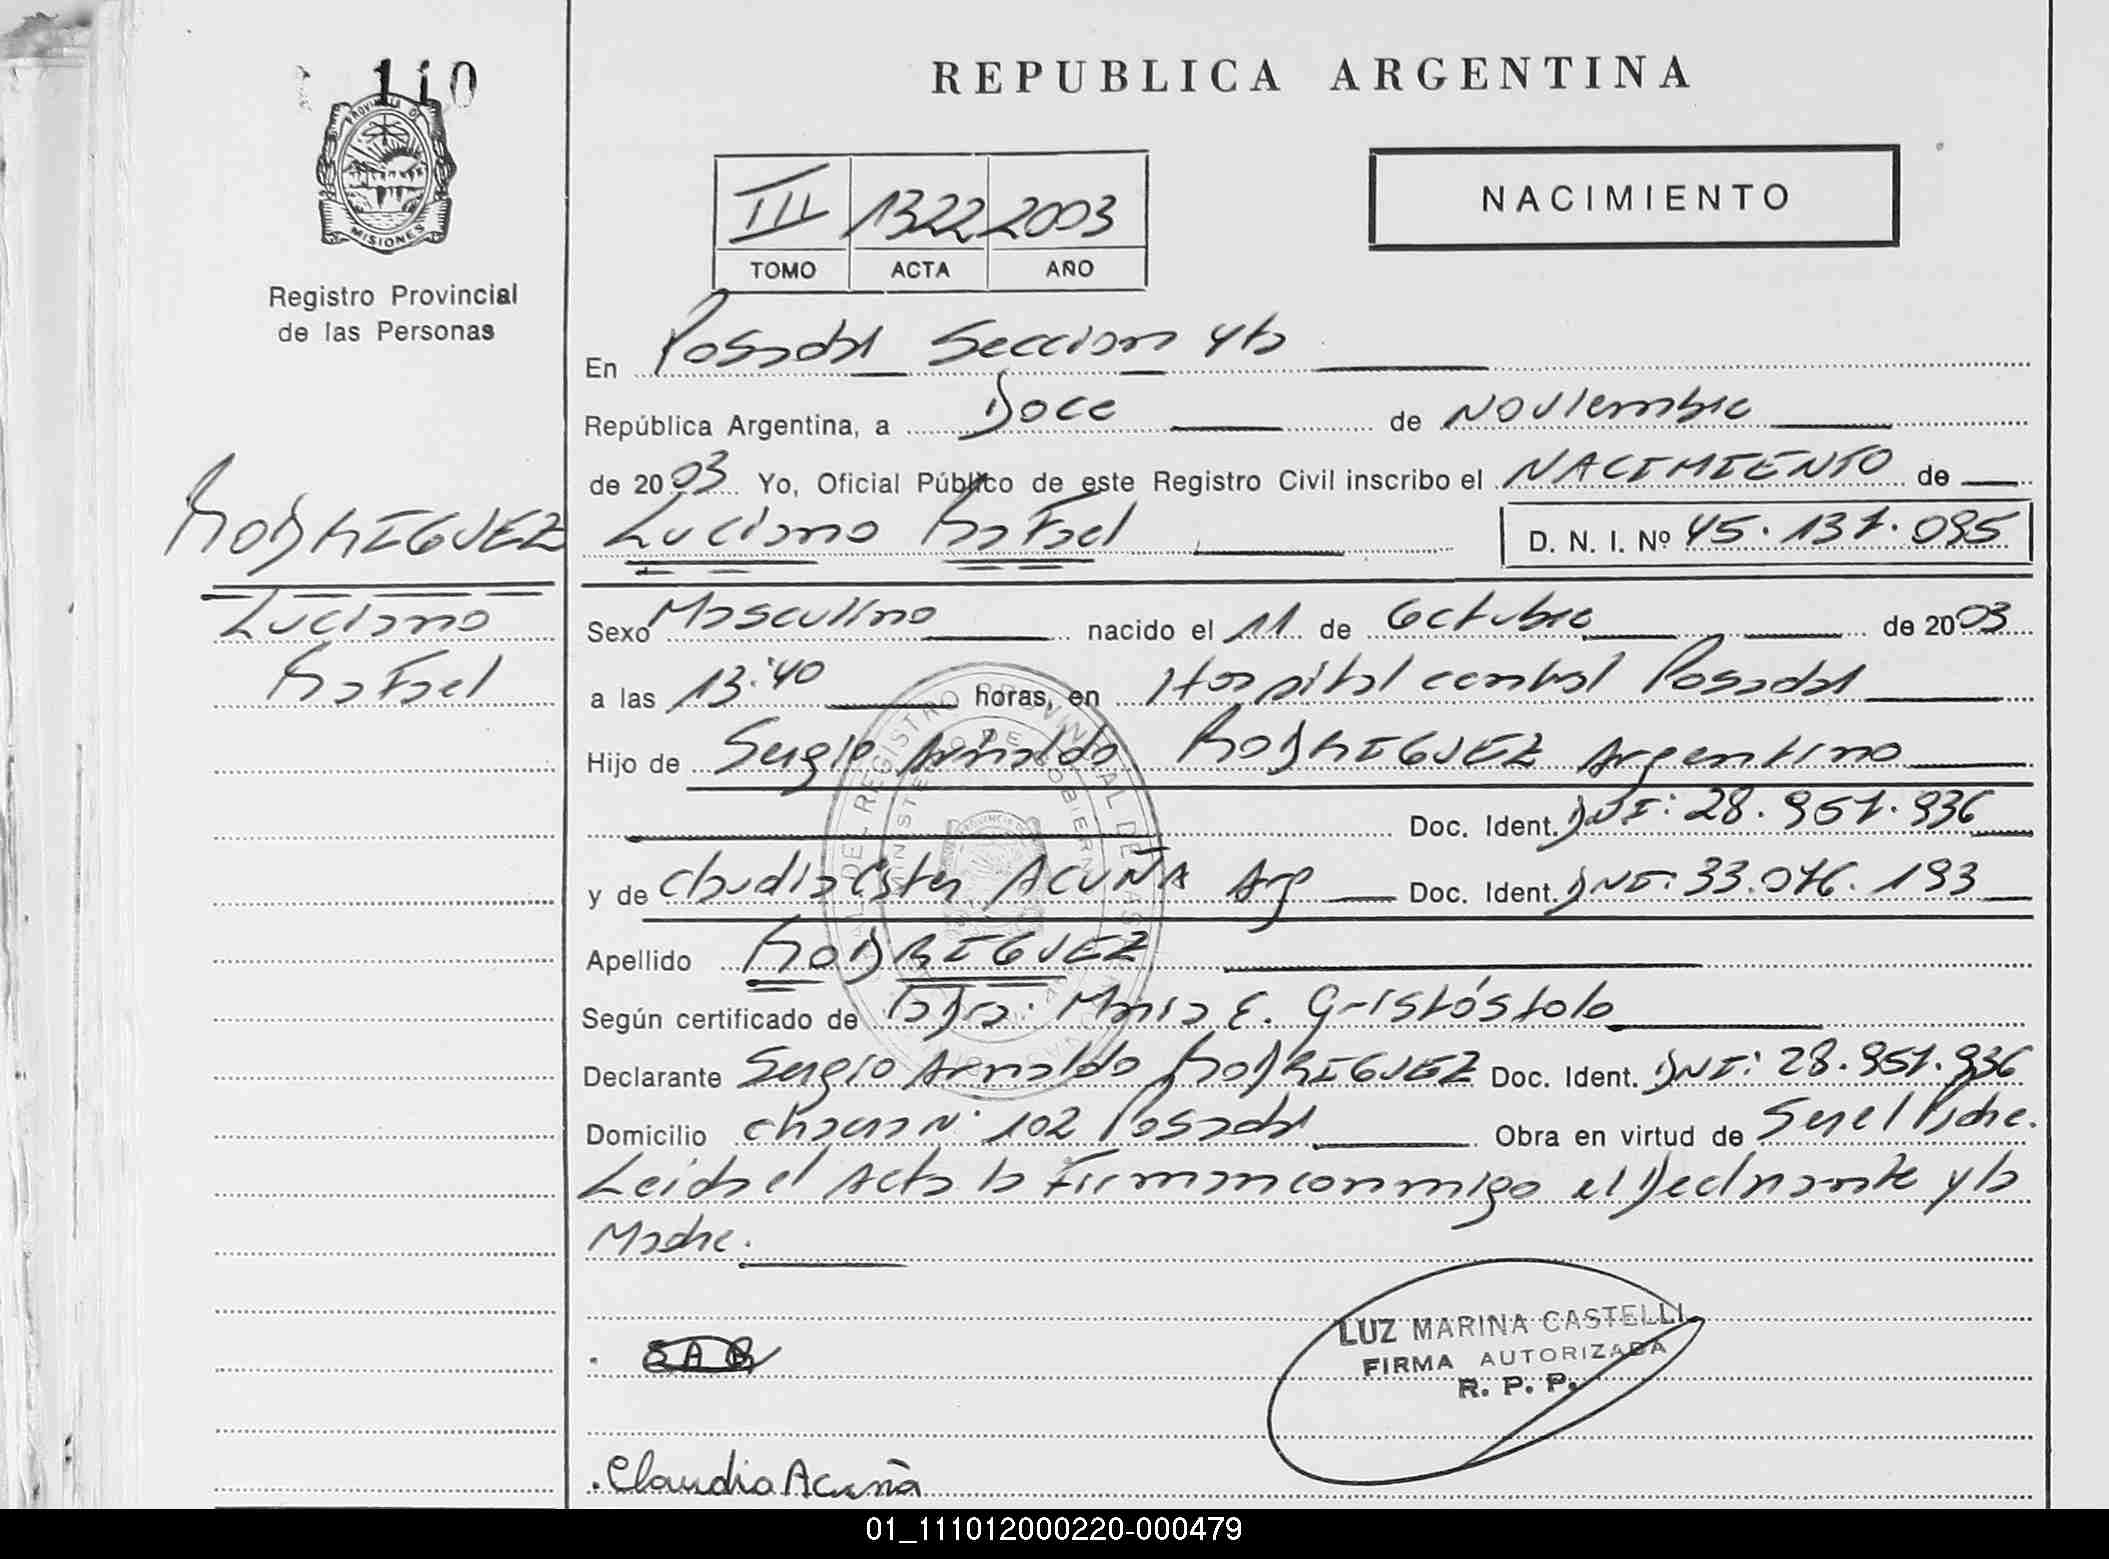 110
PROVINCIA DE
MISIONES
Registro Provincial
de las Personas
REPUBLICA ARGENTINA
NACIMIENTO
III 1322 2003
TOMO ACTA AÑO
En Posadas Seccion 4ta
República Argentina, a Doce de Noviembre
de 2003 Yo, Oficial Público de este Registro Civil inscribo el NACIMIENTO de
Luciano Rafael D. N. I. Nº 45.137.095
RODRIGUEZ
Luciano
Rafael
Sexo Masculino nacido el 11 de Octubre de 2003
a las 13:40 horas, en Hospital central Posadas
Hijo de Sergio Arnaldo RODRIGUEZ Argentino
Doc. Ident. DNI: 28.957.936
y de Claudia Ester ACUÑA Arg Doc. Ident. DNI: 33.076.193
Apellido RODRIGUEZ
Según certificado de la Dra. Maria E. Gristóstolo
Declarante Sergio Arnaldo RODRIGUEZ Doc. Ident. DNI: 28.957.936
Domicilio chacra Nº 102 Posadas Obra en virtud de Ser el Padre.
Leida el Acta la Firman conmigo el Declarante y la
Madre.
SAR
LUZ MARINA CASTELLI
FIRMA AUTORIZADA
R. P. P.
Claudia Acuña
01_111012000220-000479